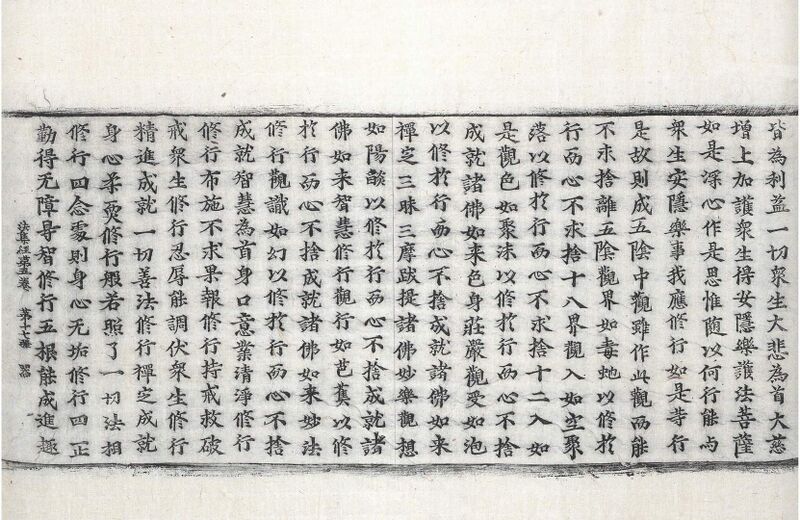 皆為利益一切衆生大悲為首大慈
增上加護衆生得安隱樂護法菩薩
如是淨心作是思惟随以何行能与
衆生安隱樂事我應修行如是等行
是故則成五陰中觀雖作此觀而能
不求捨離五陰觀界如毒虵以修於
行而心不求捨十八界觀入如空聚
落以修於行而心不求捨十二入如
是觀色如聚沫以修於行而心不捨
成就諸佛如来色身莊嚴觀受如泡
以修於行而心不捨成就諸佛如来
禪定三昧三摩跋提諸佛妙樂觀想
如陽燄以修於行而心不捨成就諸
佛如来智慧修行觀行如芭蕉以修
於行而心不捨成就諸佛如来妙法
修行觀識如幻以修於行而心不捨
成就智慧為首身口意業清淨修行
修行布施不求果報修行持戒救破
戒衆生修行忍辱能調伏衆生修行
精進成就一切善法修行禪定成就
身心柔耎修行般若照了一切法相
修行四念處則身心无垢修行四正
勤得无障导智修行五根能成進趣
法集經第五卷 第十七張 器